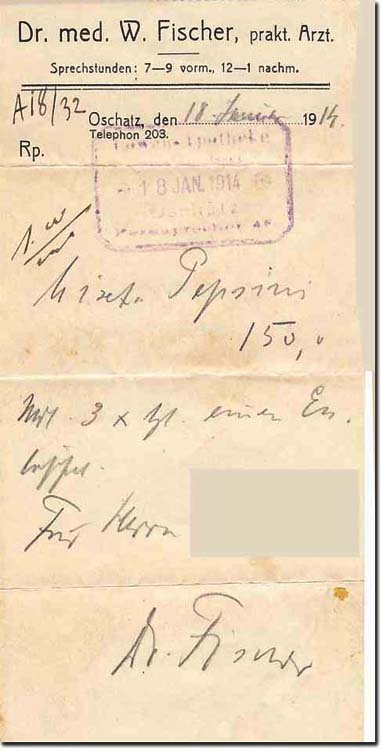 Dr. med. W. Fischer, prakt. Arzt.
Sprechstunden: 7—9 vorm., 12—1 nachm.
A18/32
Oschatz, den 18. Januar 1914.
Telephon 203.
Rp.
Löwen-Apotheke
18 JAN. 1914
Oschatz
Mixt. Pepsini
150,0
3 x tgl. einen Ess-
löffel.
Für Herrn
Dr. Fischer